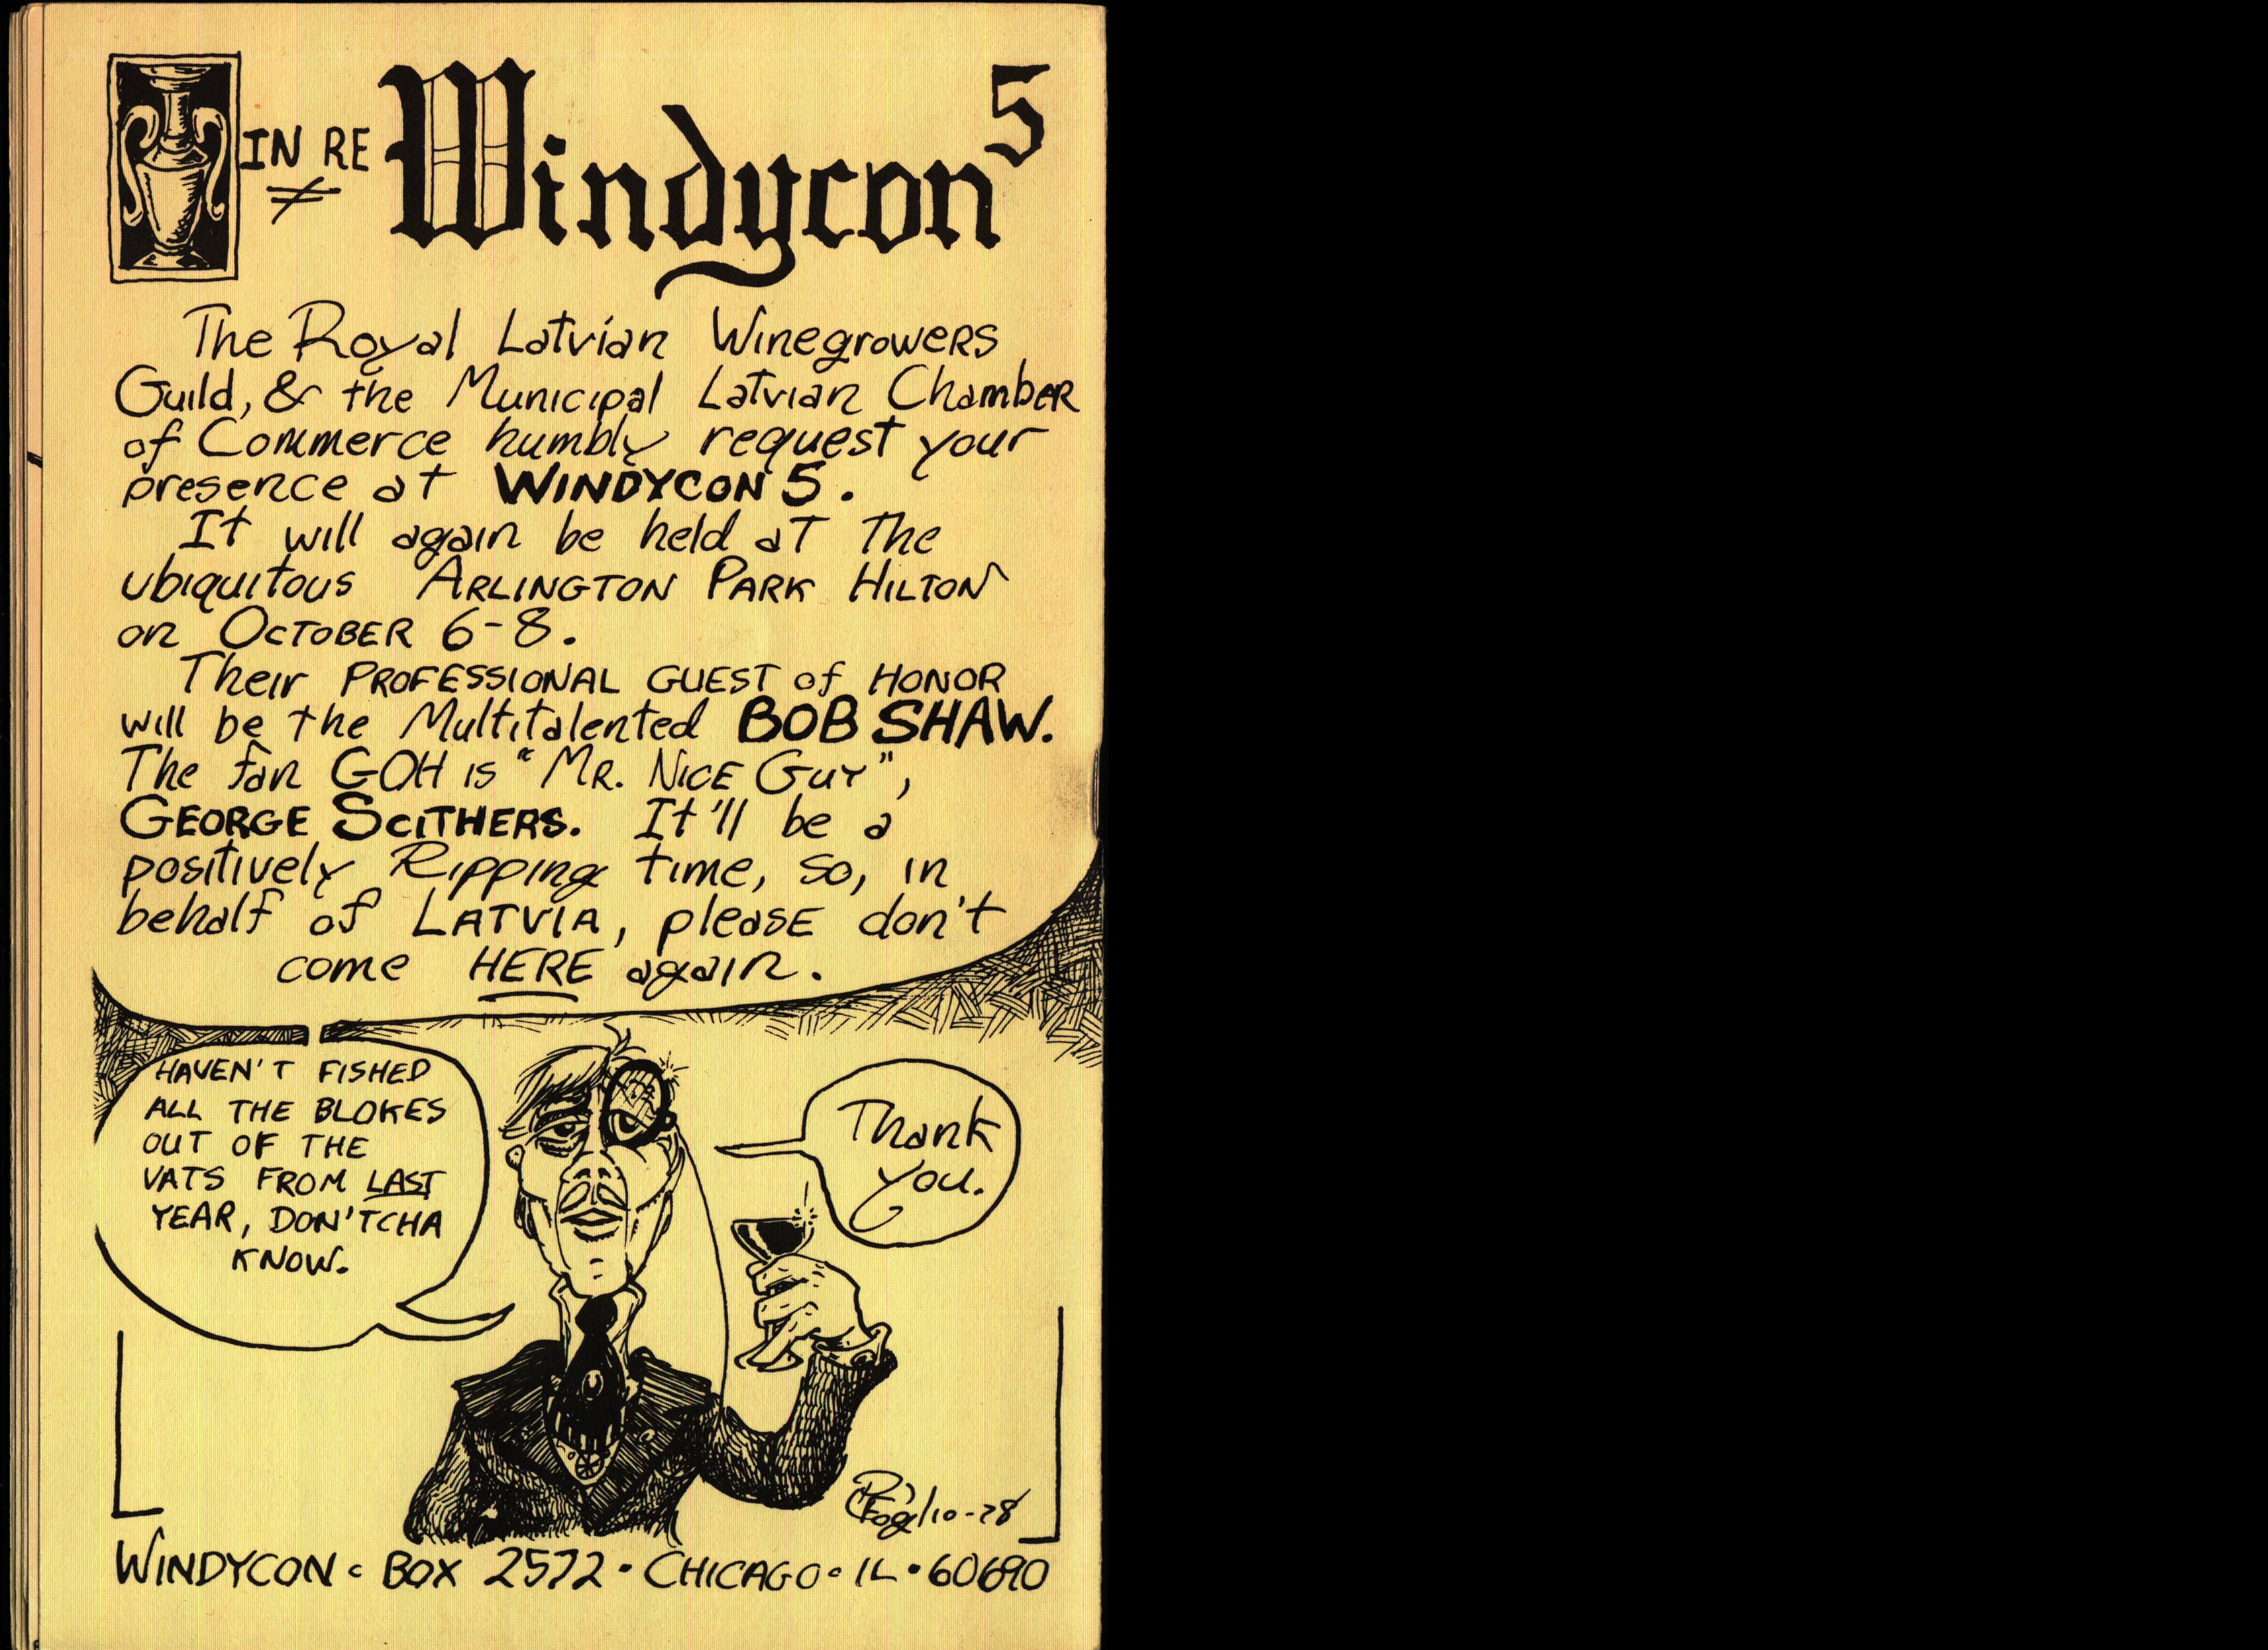 IN RE
Windycon 5
The Royal Latvian Winegrowers
Guild, & the Municipal Latvian Chamber
of Commerce humbly request your
presence at WINDYCON 5.
It will again be held at the
ubiquitous ARLINGTON PARK HILTON
on OCTOBER 6-8.
Their PROFESSIONAL GUEST of HONOR
will be the Multitalented BOB SHAW.
The fan GOH is "MR. NICE GUY",
GEORGE SCITHERS. It'll be a
positively Ripping time, so, in
behalf of LATVIA, please don't
come HERE again.
HAVEN'T FISHED
ALL THE BLOKES
OUT OF THE
VATS FROM LAST
YEAR, DON'TCHA
KNOW.
Thank
you.
Foglio-78
WINDYCON · BOX 2572 · CHICAGO · IL · 60690